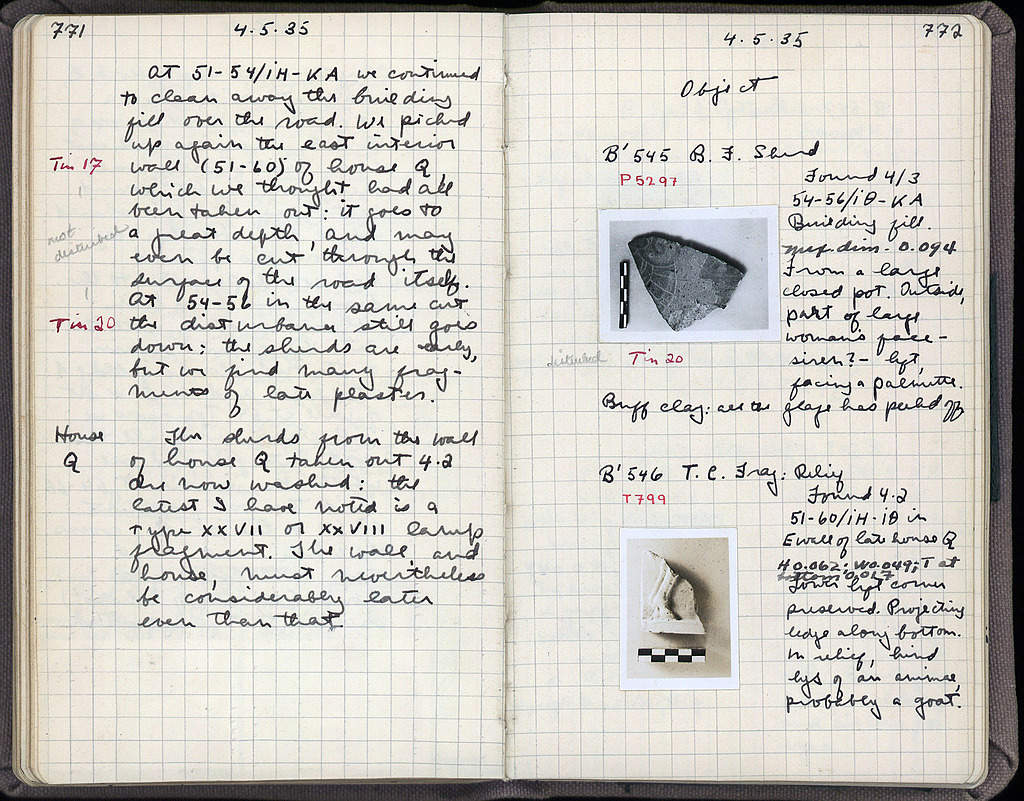 771
4.5.35
At 51-54/ΙΗ-ΚΑ we continued
to clean away the building
fill over the road. We picked
up again the east interior
Tin 17
wall (51-60) of house Q,
which we thought had all
been taken out: it goes to
not
disturbed
a great depth, and may
even be cut through the
surface of the road itself.
At 54-56 in the same cut
Tin 20
the disturbance still goes
down: the sherds are early,
but we find many frag-
ments of late plaster.
House
Q
The sherds from the wall
of house Q taken out 4.2
are now washed: the
latest I have noted is a
type XXVII or XXVIII lamp
fragment. The wall, and
house, must nevertheless
be considerably later
even than that.
772
4.5.35
Object
B'545 B. F. Sherd
P5297
Found 4/3
54-56/ΙΘ-ΚΑ
Building fill.
Max. dim. 0.094
From a large
closed pot. Outside,
part of large
woman's face -
siren? - left,
facing a palmette.
disturbed
Tin 20
Buff clay: all the glaze has peeled off
B'546 T. C. Frag: Relief
T799
Found 4.2
51-60/ΙΗ-ΙΘ in
E wall of late house Q
H 0.062: W 0.049; T at
bottom 0.017
Lower left corner
preserved. Projecting
ledge along bottom.
In relief, hind
legs of an animal,
probably a goat.